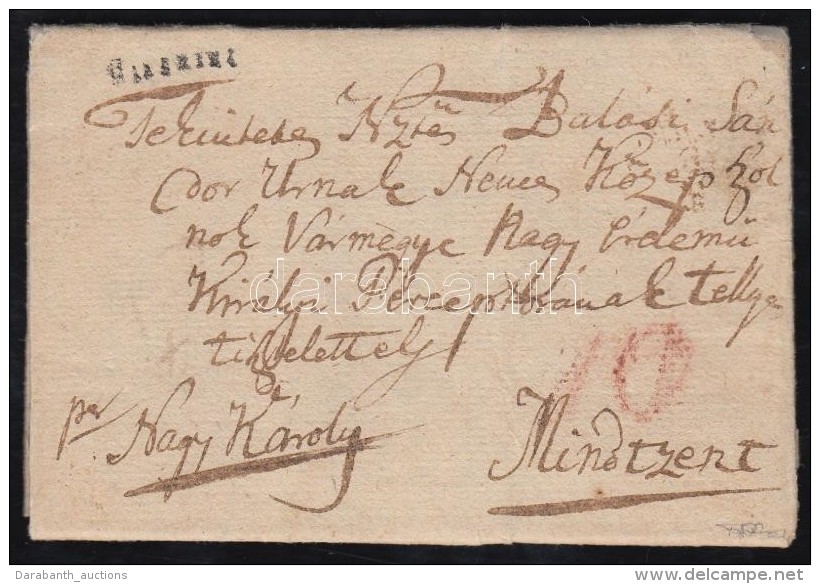 Tekintetes Nztes Balási Sán
dor Urnak Nemes Közep Szol
nok Vármegye Nagy érdemü
Királyi Perceptorának tellyes
tisztelettel
10
per Nagy Károly
Mindtzent
darabanth
Darabanth_auctions